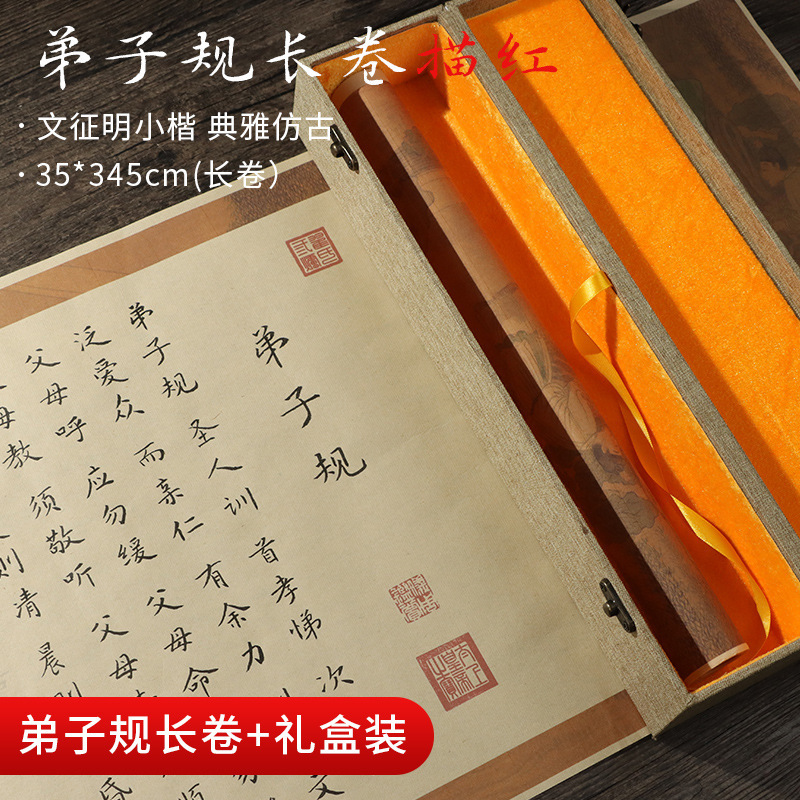 弟子规长卷描红
·文征明小楷 典雅仿古
·35*345cm(长卷)
弟子规
弟子规 圣人训 首孝悌 次
泛爱众 而亲仁 有余力 文
父母呼 应勿缓 父母命 勿
母教 须敬听 父母 顺
则清 晨则 昏
弟子规长卷+礼盒装